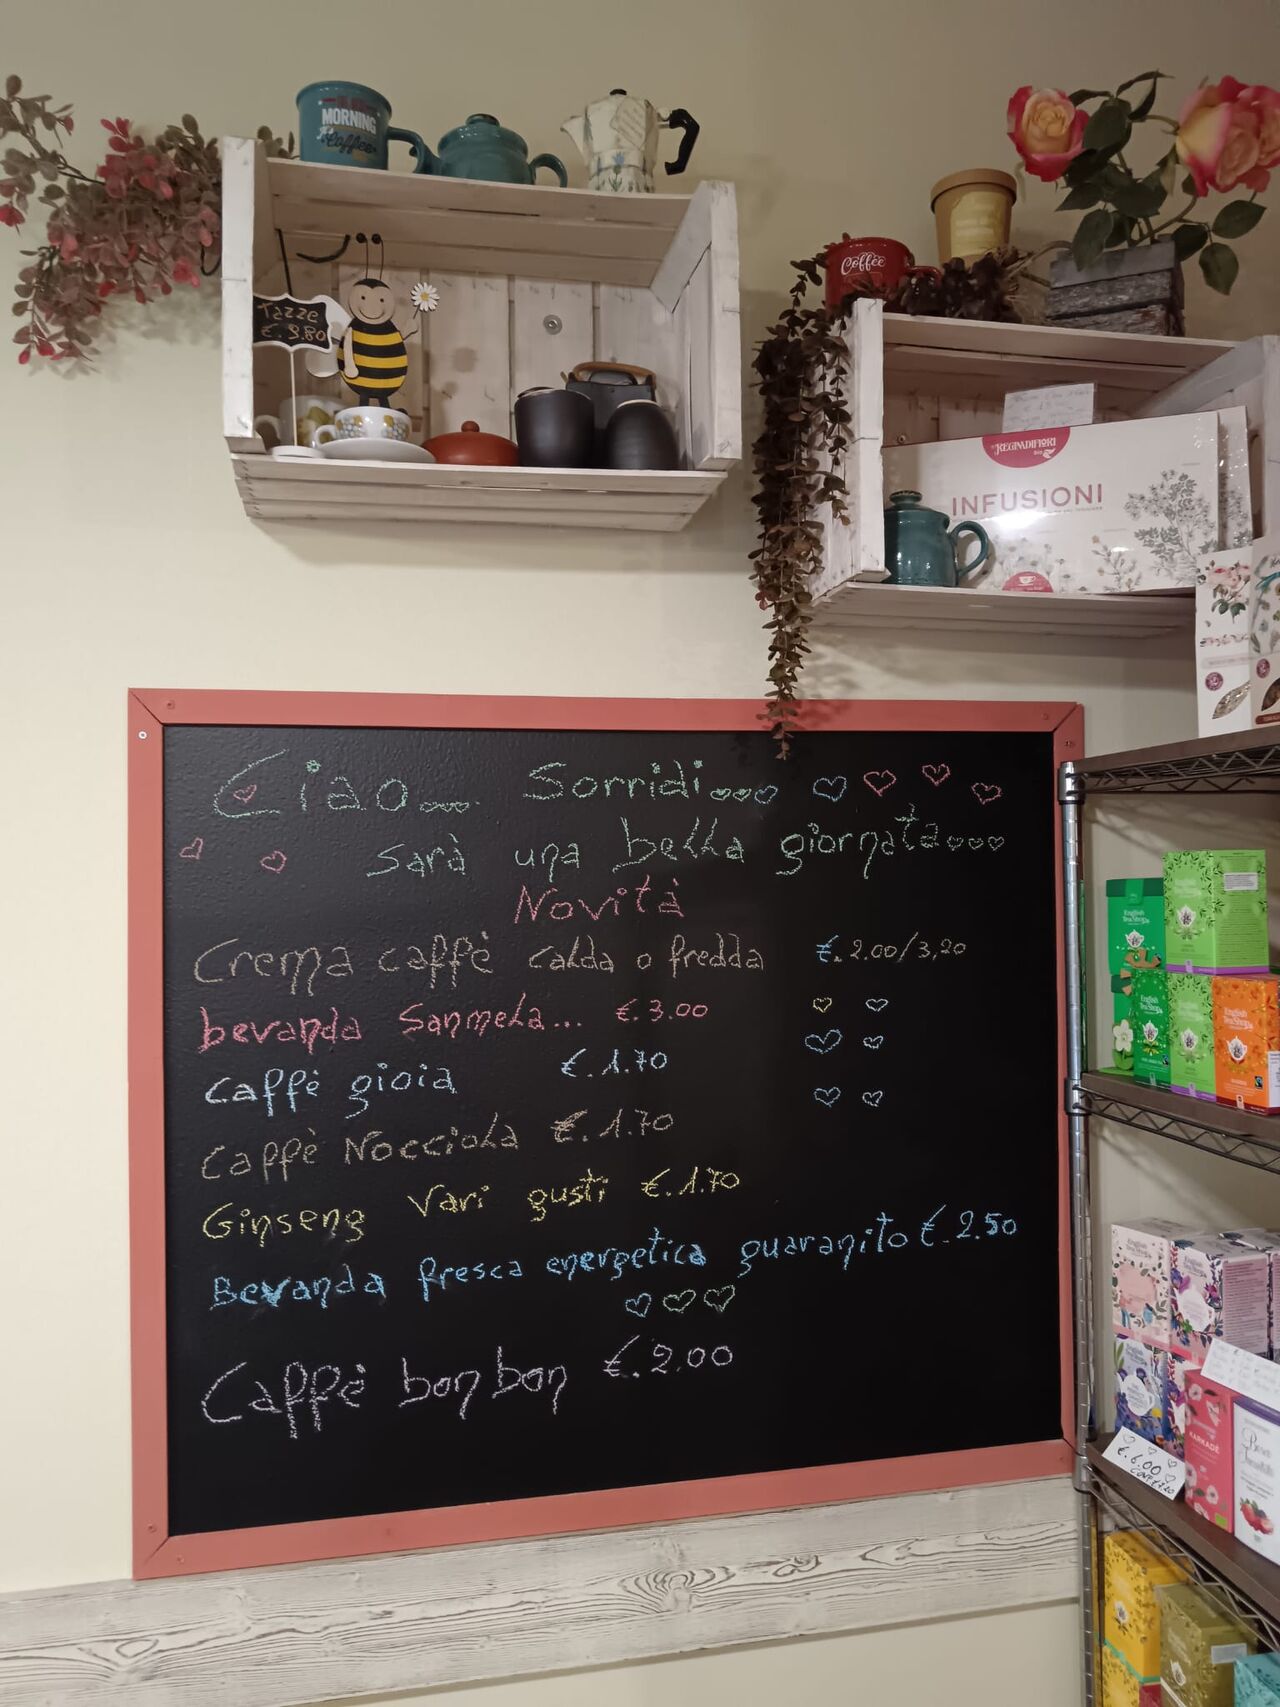 MORNING
Coffee
Coffee
Tazze
€. 9.80
REGINADIFIORI
bio
INFUSIONI
Ciao.... Sorridi...
sarà una bella giornata...
Novità
Crema caffè calda o fredda €. 2.00/3,20
bevanda Sanmela... €. 3.00
Caffè gioia €. 1.70
Caffè Nocciola €. 1.70
Ginseng Vari gusti €. 1.70
Bevanda fresca energetica guaranito €. 2.50
Caffè bon bon €. 2.00
English
Tea Shop
English
Tea Shop
English
Tea Shop
English
Tea Shop
English
Tea Shop
KARKADÈ
€. 6.00